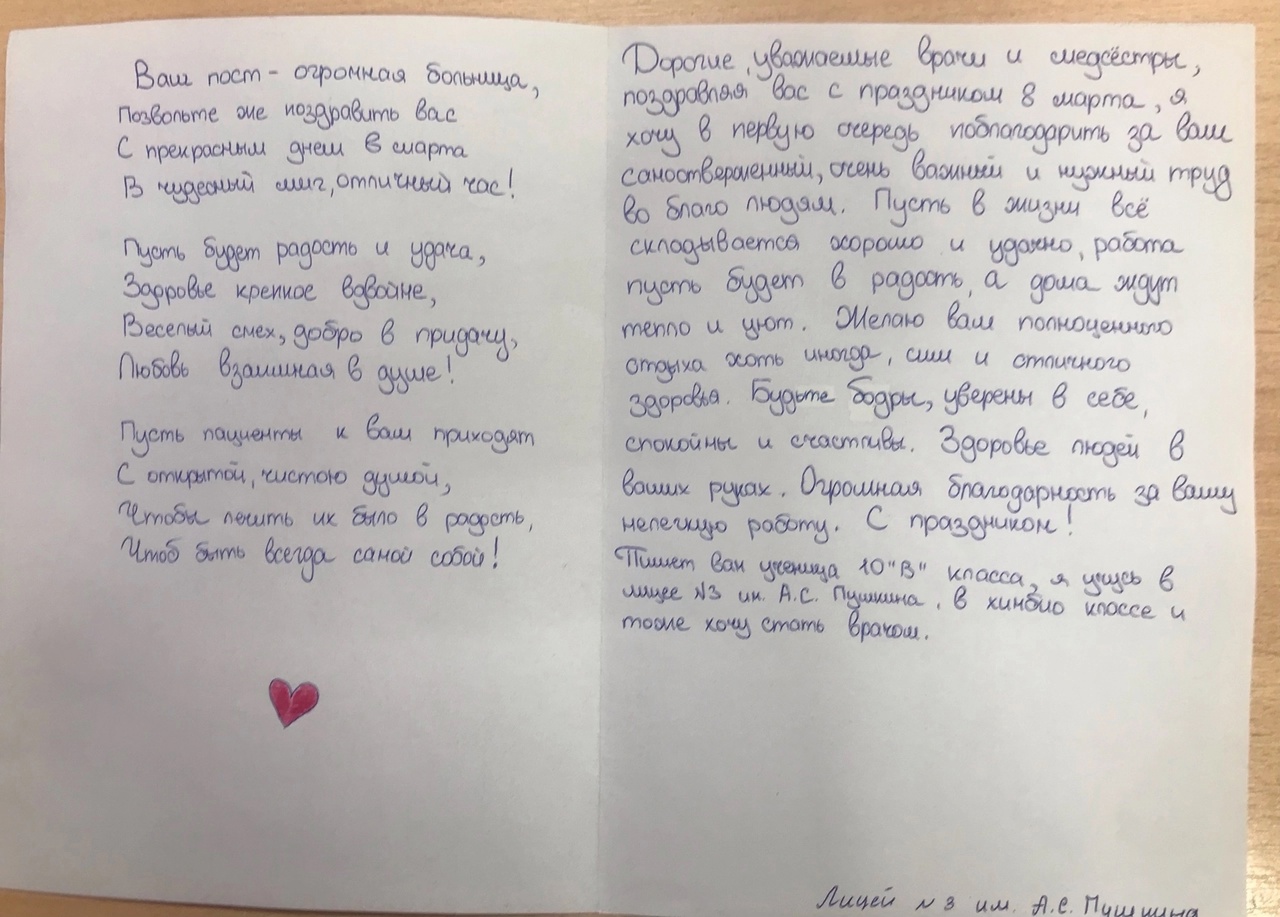 Ваш пост - огромная больница,
Позвольте же поздравить вас
С прекрасным днем 8 марта
В чудесный миг, отличный час!
Пусть будет радость и удача,
Здоровье крепкое вдвойне,
Веселый смех, добро в придачу,
Любовь взаимная в душе!
Пусть пациенты к вам приходят
С открытой, чистою душой,
Чтобы лечить их было в радость,
Чтоб быть всегда самой собой!
Дорогие, уважаемые врачи и медсёстры,
поздравляя вас с праздником 8 марта, я
хочу в первую очередь поблагодарить за ваш
самоотверженный, очень важный и нужный труд
во благо людям. Пусть в жизни всё
складывается хорошо и удачно, работа
пусть будет в радость, а дома ждут
тепло и уют. Желаю вам полноценного
отдыха хоть иногда, сил и отличного
здоровья. Будьте бодры, уверены в себе,
спокойны и счастливы. Здоровье людей в
ваших руках. Огромная благодарность за вашу
нелегкую работу. С праздником!
Пишет вам ученица 10"В" класса, я учусь в
лицее №3 им. А.С. Пушкина, в химбио классе и
тоже хочу стать врачом.
Лицей №3 им. А.С. Пушкина